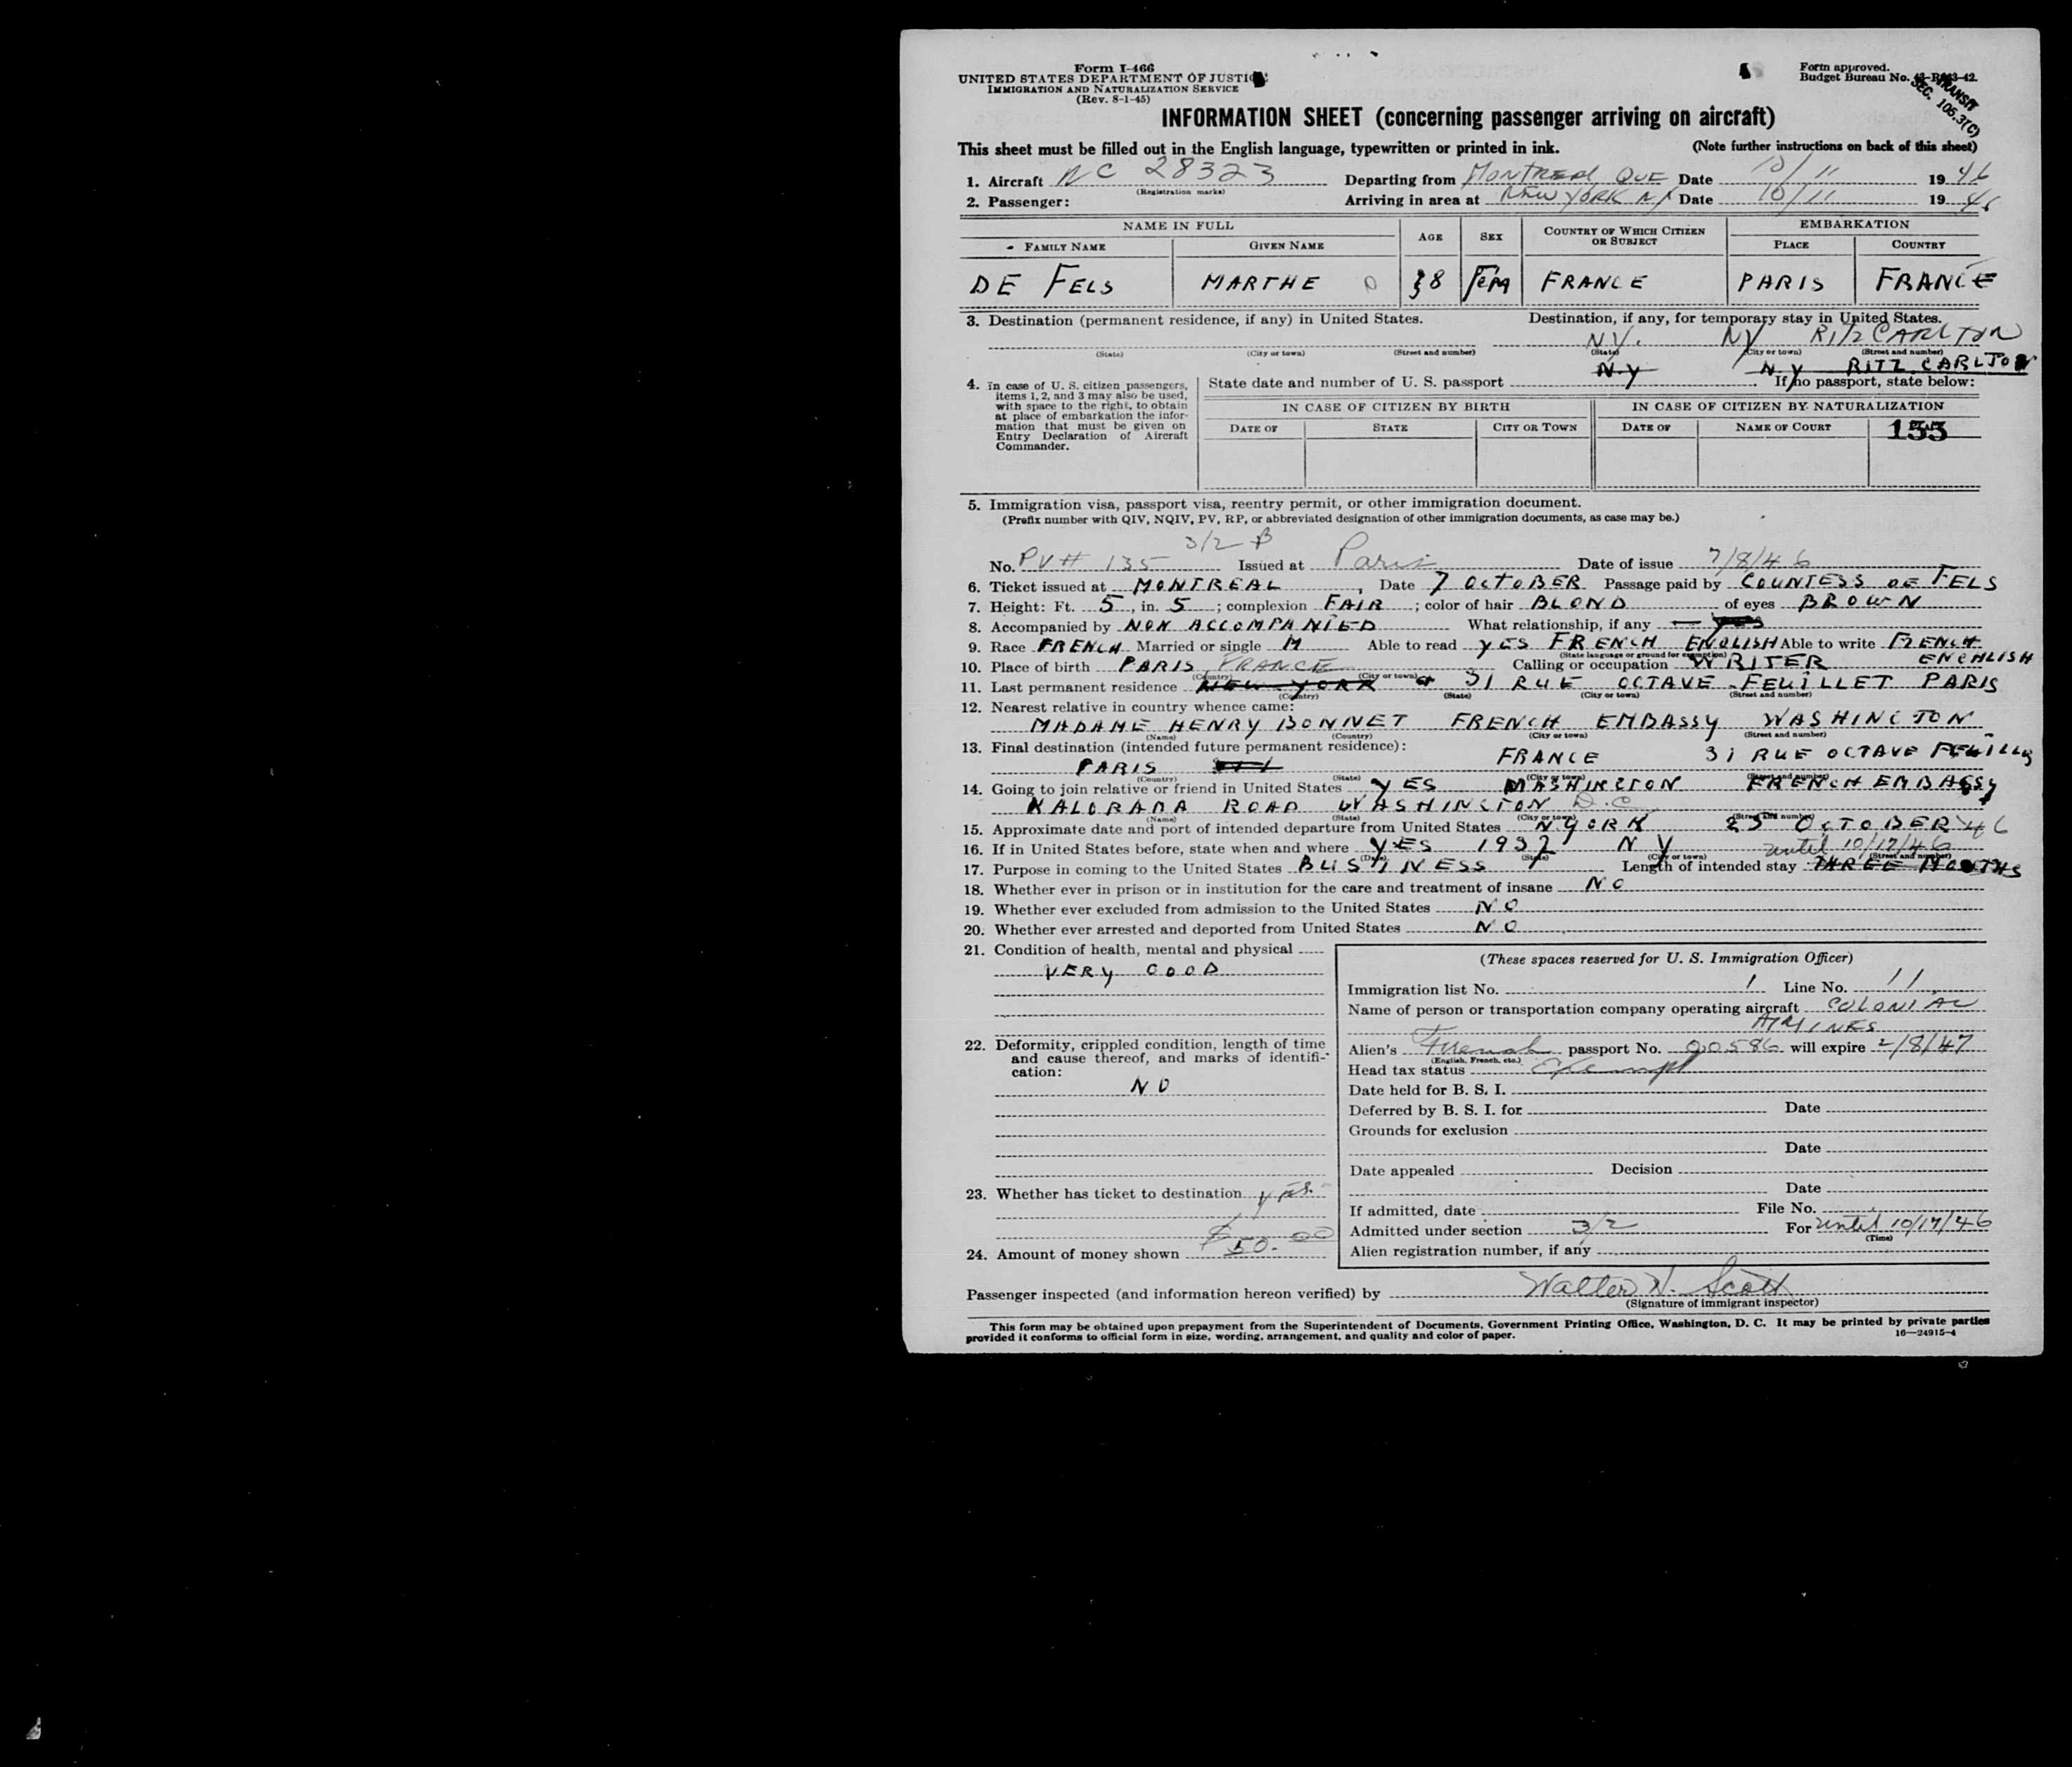 Form I-466
UNITED STATES DEPARTMENT OF JUSTICE
IMMIGRATION AND NATURALIZATION SERVICE
(Rev. 8-1-45)
Form approved.
Budget Bureau No. 43-R043-42.
TRANSIT
SEC. 105.3(C)
INFORMATION SHEET (concerning passenger arriving on aircraft)
This sheet must be filled out in the English language, typewritten or printed in ink. (Note further instructions on back of this sheet)
1. Aircraft NC 28323 Departing from MONTREAL QUE Date 10/11 19 46
(Registration marks)
2. Passenger: Arriving in area at NEW YORK NY Date 10/11 19 46
NAME IN FULL AGE SEX COUNTRY OF WHICH CITIZEN OR SUBJECT EMBARKATION
FAMILY NAME GIVEN NAME PLACE COUNTRY
DE FELS MARTHE 38 FEM FRANCE PARIS FRANCE
3. Destination (permanent residence, if any) in United States. Destination, if any, for temporary stay in United States.
NY. NY RITZ CARLTON
(State) (City or town) (Street and number) (State) (City or town) (Street and number)
N.Y N.Y RITZ CARLTON
4. In case of U. S. citizen passengers, items 1, 2, and 3 may also be used, with space to the right, to obtain at place of embarkation the information that must be given on Entry Declaration of Aircraft Commander.
State date and number of U. S. passport If no passport, state below:
IN CASE OF CITIZEN BY BIRTH IN CASE OF CITIZEN BY NATURALIZATION
DATE OF STATE CITY OR TOWN DATE OF NAME OF COURT 155
5. Immigration visa, passport visa, reentry permit, or other immigration document.
(Prefix number with QIV, NQIV, PV, RP, or abbreviated designation of other immigration documents, as case may be.)
3/2 B
No. PV# 135 Issued at Paris Date of issue 7/8/46
6. Ticket issued at MONTREAL, Date 7 OCTOBER Passage paid by COUNTESS DE FELS
7. Height: Ft. 5, in. 5; complexion FAIR; color of hair BLOND of eyes BROWN
8. Accompanied by NON ACCOMPANIED What relationship, if any — yes
9. Race FRENCH Married or single M Able to read YES FRENCH ENGLISH Able to write FRENCH
(State language or ground for exemption) ENGHLISH
10. Place of birth PARIS FRANCE Calling or occupation WRITER
(Country) (City or town)
11. Last permanent residence NEW YORK 31 RUE OCTAVE FEUILLET PARIS
(Country) (State) (City or town) (Street and number)
12. Nearest relative in country whence came:
MADAME HENRY BONNET FRENCH EMBASSY WASHINGTON
(Name) (Country) (City or town) (Street and number)
13. Final destination (intended future permanent residence):
PARIS FRANCE 31 RUE OCTAVE FEUILLY
(Country) (State) (City or town) (Street and number)
14. Going to join relative or friend in United States YES WASHINGTON FRENCH EMBASSY
KALORAMA ROAD WASHINGTON D.C
(Name) (State) (City or town) (Street and number)
15. Approximate date and port of intended departure from United States N YORK 25 OCTOBER 46
16. If in United States before, state when and where YES 1937 NY until 10/17/46
(Date) (State) (City or town) (Street and number)
17. Purpose in coming to the United States BUSINESS Length of intended stay THREE MONTHS
18. Whether ever in prison or in institution for the care and treatment of insane NO
19. Whether ever excluded from admission to the United States NO
20. Whether ever arrested and deported from United States NO
21. Condition of health, mental and physical
VERY GOOD
22. Deformity, crippled condition, length of time and cause thereof, and marks of identification:
NO
23. Whether has ticket to destination yes.
24. Amount of money shown $50.00
(These spaces reserved for U. S. Immigration Officer)
Immigration list No. 1 Line No. 11
Name of person or transportation company operating aircraft COLONIAL
AIRLINES
Alien's French passport No. 00586 will expire 2/8/47
(English, French, etc.)
Head tax status Exempt
Date held for B. S. I.
Deferred by B. S. I. for Date
Grounds for exclusion
Date
Date appealed Decision
Date
If admitted, date File No.
Admitted under section 3/2 For until 10/17/46
(Time)
Alien registration number, if any
Passenger inspected (and information hereon verified) by Walter N. Scott
(Signature of immigrant inspector)
This form may be obtained upon prepayment from the Superintendent of Documents, Government Printing Office, Washington, D. C. It may be printed by private parties
provided it conforms to official form in size, wording, arrangement, and quality and color of paper. 16—24915-4